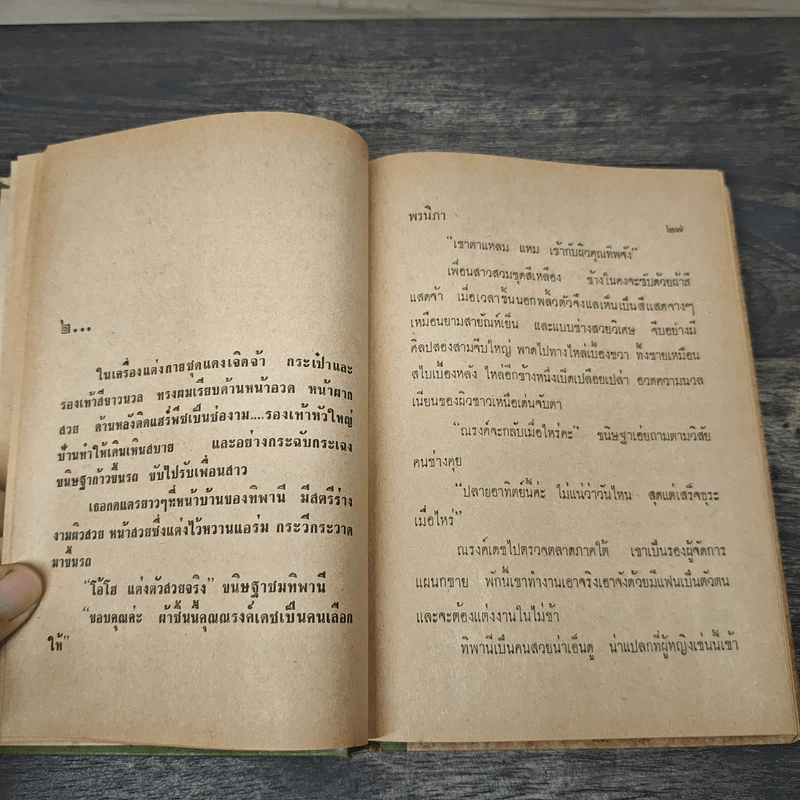 ๒...
ในเครื่องแต่งกายชุดแดงเจิดจ้า กระเป๋าและ
รองเท้าสีขาวนวล ทรงผมเรียบด้านหน้าอวด หน้าผาก
สวย ด้านหลังติดแฮร์พีชเป็นช่องาม....รองเท้าหัวใหญ่
ป้านทำให้เดินเหินสบาย และอย่างกระฉับกระเฉง
ขนิษฐาก้าวขึ้นรถ ขับไปรับเพื่อนสาว
เธอกดแตรยาวๆที่หน้าบ้านของทิพานี มีสตรีร่าง
งามผิวสวย หน้าสวยซึ่งแต่งไว้หวานแอร่ม กระวีกระวาด
มาขึ้นรถ
“โอ้โฮ แต่งตัวสวยจริง” ขนิษฐาชมทิพานี
“ขอบคุณค่ะ ผ้าชิ้นนี้คุณณรงค์เดชเป็นคนเลือก
ให้”
พรนิภา
๒๗
“เขาตาแหลม แหม เข้ากับผิวคุณทิพจัง”
เพื่อนสาวสวมชุดสีเหลือง ข้างในคงจะซับด้วยผ้าสี
แสดจ้า เมื่อเวลาชั้นนอกพลิ้วตัวจึงแลเห็นเป็นสีแสดจางๆ
เหมือนยามสายัณห์เย็น และแบบช่างสวยวิเศษ จีบอย่างมี
ศิลปสองสามจีบใหญ่ พาดไปทางไหล่เบื้องขวา ทิ้งชายเหมือน
สไบเบื้องหลัง ไหล่อีกข้างหนึ่งเปิดเปลือยเปล่า อวดความนวล
เนียนของผิวขาวเหนือเด่นจับตา
“ณรงค์จะกลับเมื่อไหร่คะ” ขนิษฐาเอ่ยถามตามวิสัย
คนช่างคุย
“ปลายอาทิตย์นี้ค่ะ ไม่แน่ว่าวันไหน สุดแต่เสร็จธุระ
เมื่อไหร่”
ณรงค์เดชไปตรวจตลาดภาคใต้ เขาเป็นรองผู้จัดการ
แผนกขาย พักนี้เขาทำงานเอาจริงเอาจังด้วยมีแฟนเป็นตัวตน
และจะต้องแต่งงานในไม่ช้า
ทิพานีเป็นคนสวยน่าเอ็นดู น่าแปลกที่ผู้หญิงเช่นนี้เข้า